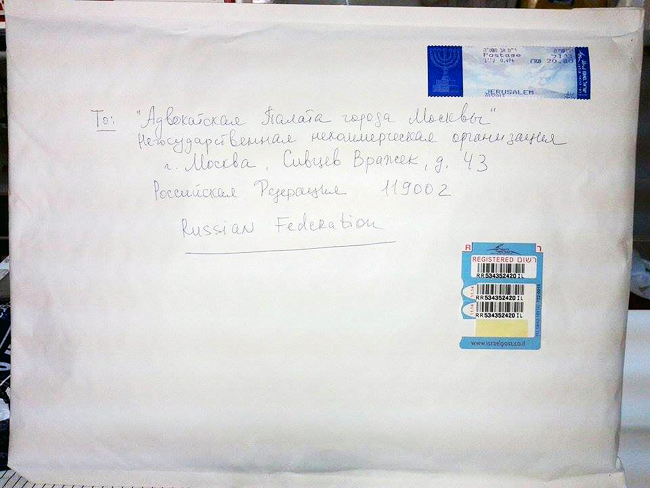 Postage
JERUSALEM
To: "Адвокатская Палата города Москвы"
Негосударственная некоммерческая организация
г. Москва, Сивцев Вражек, д. 43
Российская Федерация 119002
Russian Federation
REGISTERED רשום
RR534352420IL
RR534352420IL
RR534352420IL
www.israelpost.co.il